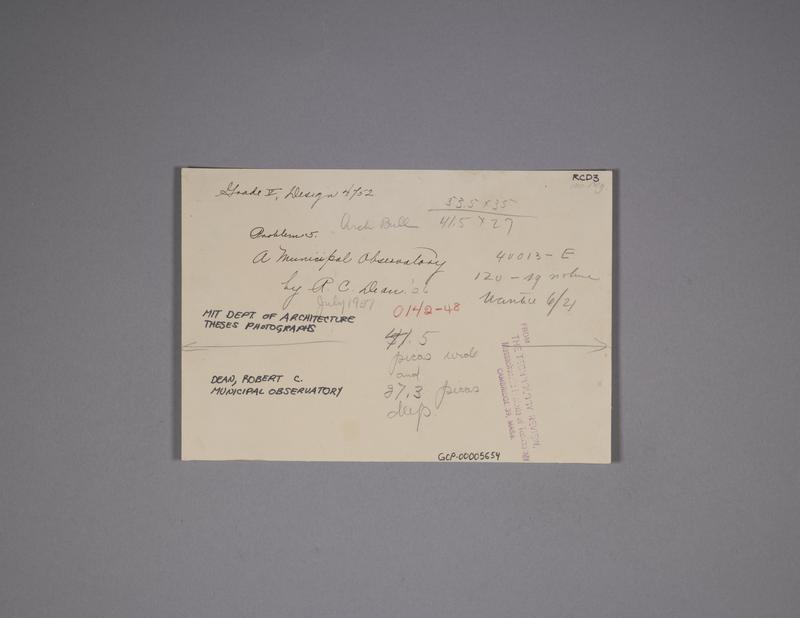 RCD3
Grade V, Design 4702
53.5 x 35
Arch Bull
41.5 x 27
Problem 5.
A Municipal Observatory
40013 - E
by R. C. Dean '26
120 - sq
6/21
July 1927
0142-48
MIT DEPT. OF ARCHITECTURE
THESES PHOTOGRAPHS
41.5
picas wide
and
27.3 picas
deep.
DEAN, ROBERT C.
MUNICIPAL OBSERVATORY
FROM
THE TECHNOLOGY REVIEW,
CAMBRIDGE 39, MASS.
GCP-00005654